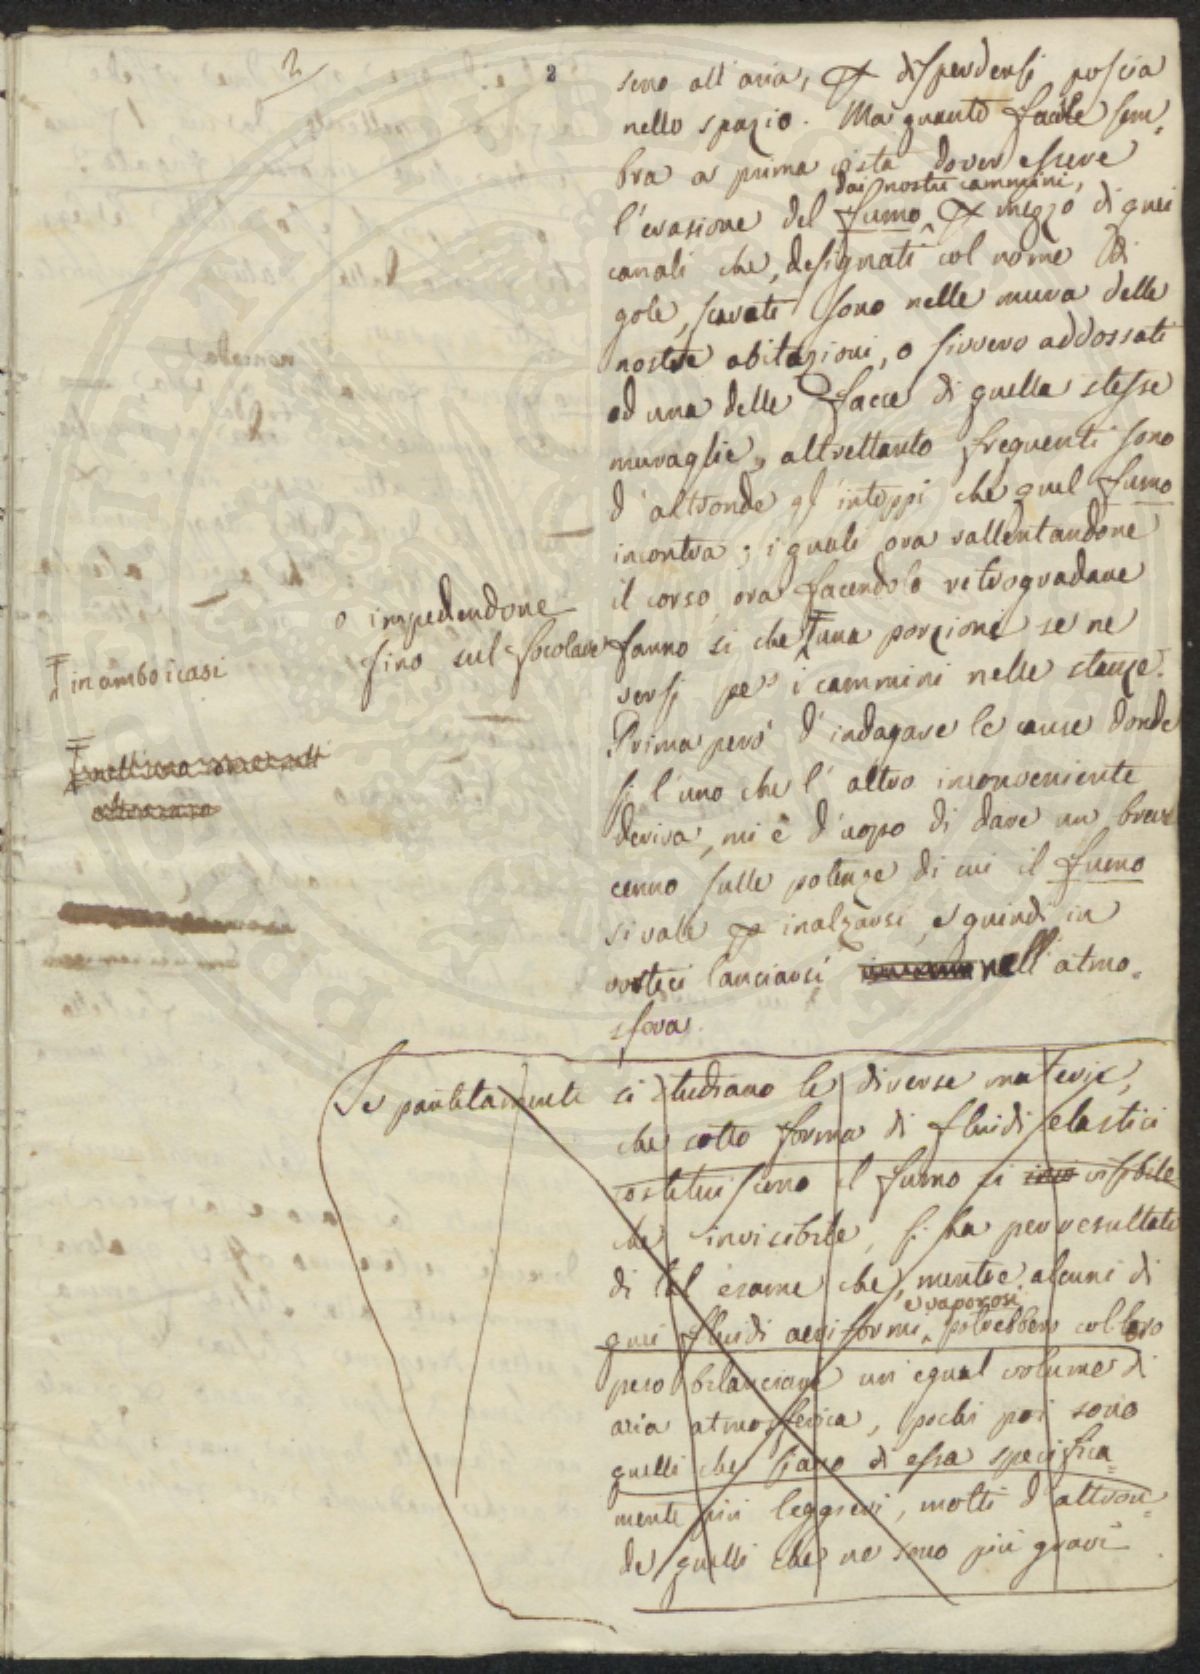 2
2
seno all'aria, p disperdersi poscia
nello spazio. Ma quanto facile sem=
bra a prima vista dover essere
dai nostri cammini,
l'evasione del fumo p mezzo di quei
canali che, designati col nome di
gole, scavati sono nelle mura delle
nostre abitazioni, o sivvero addossati
ad una delle facce di quella stesse
muraglie, altrettanto frequenti sono
d'altronde gl'intoppi che quel fumo
incontra; i quali ora rallentandone
il corso, ora facendolo retrogradare
o impedendone
fino sul focolare
fanno si che una porzione se ne
versi per i cammini nelle stanze.
in ambo i casi
Prima però d'indagare le cause donde
sì l'uno che l'altro inconveniente
deriva, mi è d'uopo di dare un breve
cenno sulle potenze di cui il fumo
si vale p inalzarsi, e quindi in
vortici lanciarsi nell'atmo=
sfera.
Se partitamente si studiano le diverse materie,
che sotto forma di fluidi elastici
costituiscono il fumo si visibile
che invisibile, si ha per resultato
di tal esame che, mentre alcuni di
e vaporosi
quei fluidi aeriformi, potrebbero col loro
peso bilanciare un egual volume di
aria atmosferica, pochi poi sono
quelli che siano di essa specifica=
mente più leggeri, molti d'altron=
de quelli che ne sono più gravi.